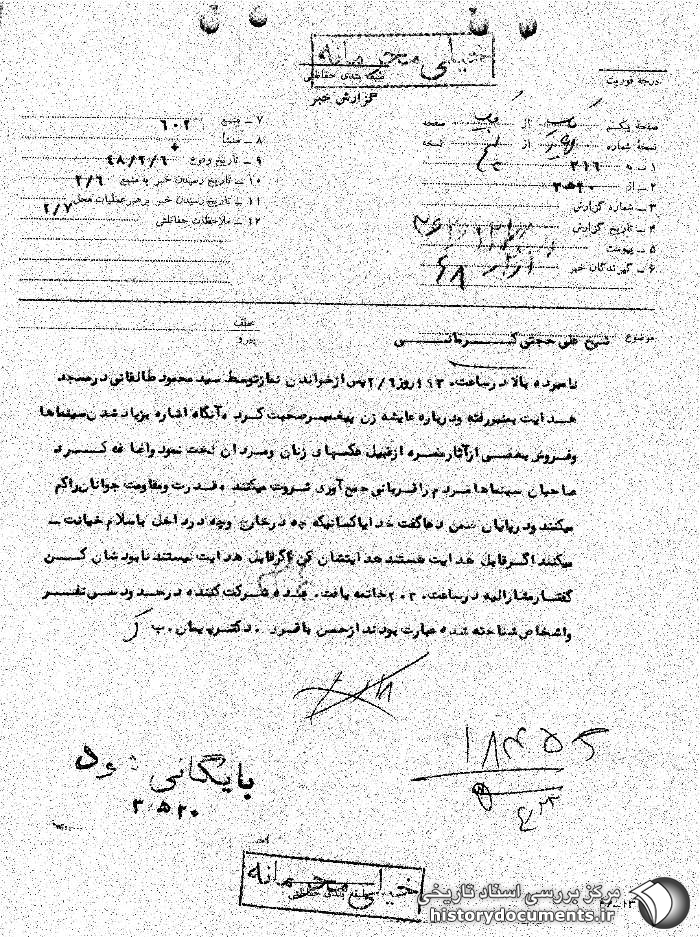 خیلی محرمانه
طبقه بندی حفاظتی
درجه فوریت
گزارش خبر
صفحه یکم از صفحه
نسخه شماره از نسخه
۱ – به ۳۱۶
۲ – از
۳ – شماره گزارش
۴ – تاریخ گزارش
۵ – پیوست
۶ – گیرندگان خبر
۷ – منبع ۶۰۲
۸ – منشا
۹ – تاریخ وقوع ۴۸/۲/۶
۱۰ – تاریخ رسیدن خبر به منبع ۲/۶
۱۱ – تاریخ رسیدن خبر برهبر عملیات محل ۲/۷
۱۲ – ملاحظات حفاظتی
موضوع شیخ علی حجتی کرمانی
عطف
پیرو
نامبرده بالا در ساعت روز ۲/۶ پس از خواندن نماز توسط سید محمود طالقانی در مسجد
هدایت بمنبر رفته و درباره عایشه زن پیغمبر صحبت کرد و آنگاه اشاره بزیاد شدن سینماها
و فروش بعضی از آثار مضره از قبیل عکسهای زنان و مردان لخت نمود و اضافه کرد
صاحبان سینماها مردم را قربانی جمع آوری ثروت میکنند و قدرت و مقاومت جوانان را کم
میکنند و در پایان ضمن دعا گفت خدایا کسانیکه چه در خارج و چه در داخل باسلام خیانت –
میکنند اگر قابل هدایت هستند هدایتشان کن و اگر قابل هدایت نیستند نابودشان کن
گفتار مشارالیه در ساعت خاتمه یافت. عده شرکت کننده در حدود سی نفر
و اشخاص شناخته شده عبارت بودند از حسن . دکتر پیمان . ب
بایگانی شود
خیلی محرمانه
مرکز بررسی اسناد تاریخی
historydocuments.ir